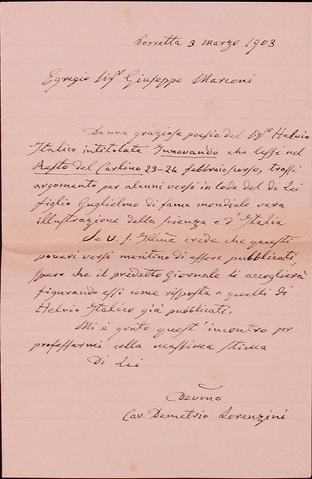 Porretta 3 marzo 1903
Egregio Sigr Giuseppe Marconi
Da una graziosa poesia del Sigr Helvio
Italico intitolata Innovando che lessi nel
Resto del Carlino 23-24 febbraio scorso, trassi
argomento per alcuni versi in lode del di Lei
figlio Guglielmo di fama mondiale vera
illustrazione della scienza e d'Italia
Se V. S. Illma crede che questi
poveri versi meritino di essere pubblicati,
spero che il predetto Giornale li accoglierà
figurando essi come risposta a quelli di
Helvio Italico già pubblicati.
Mi è grato quest'incontro per
professarmi colla massima stima
Di Lei
Devmo
Cav. Demetrio Lorenzini